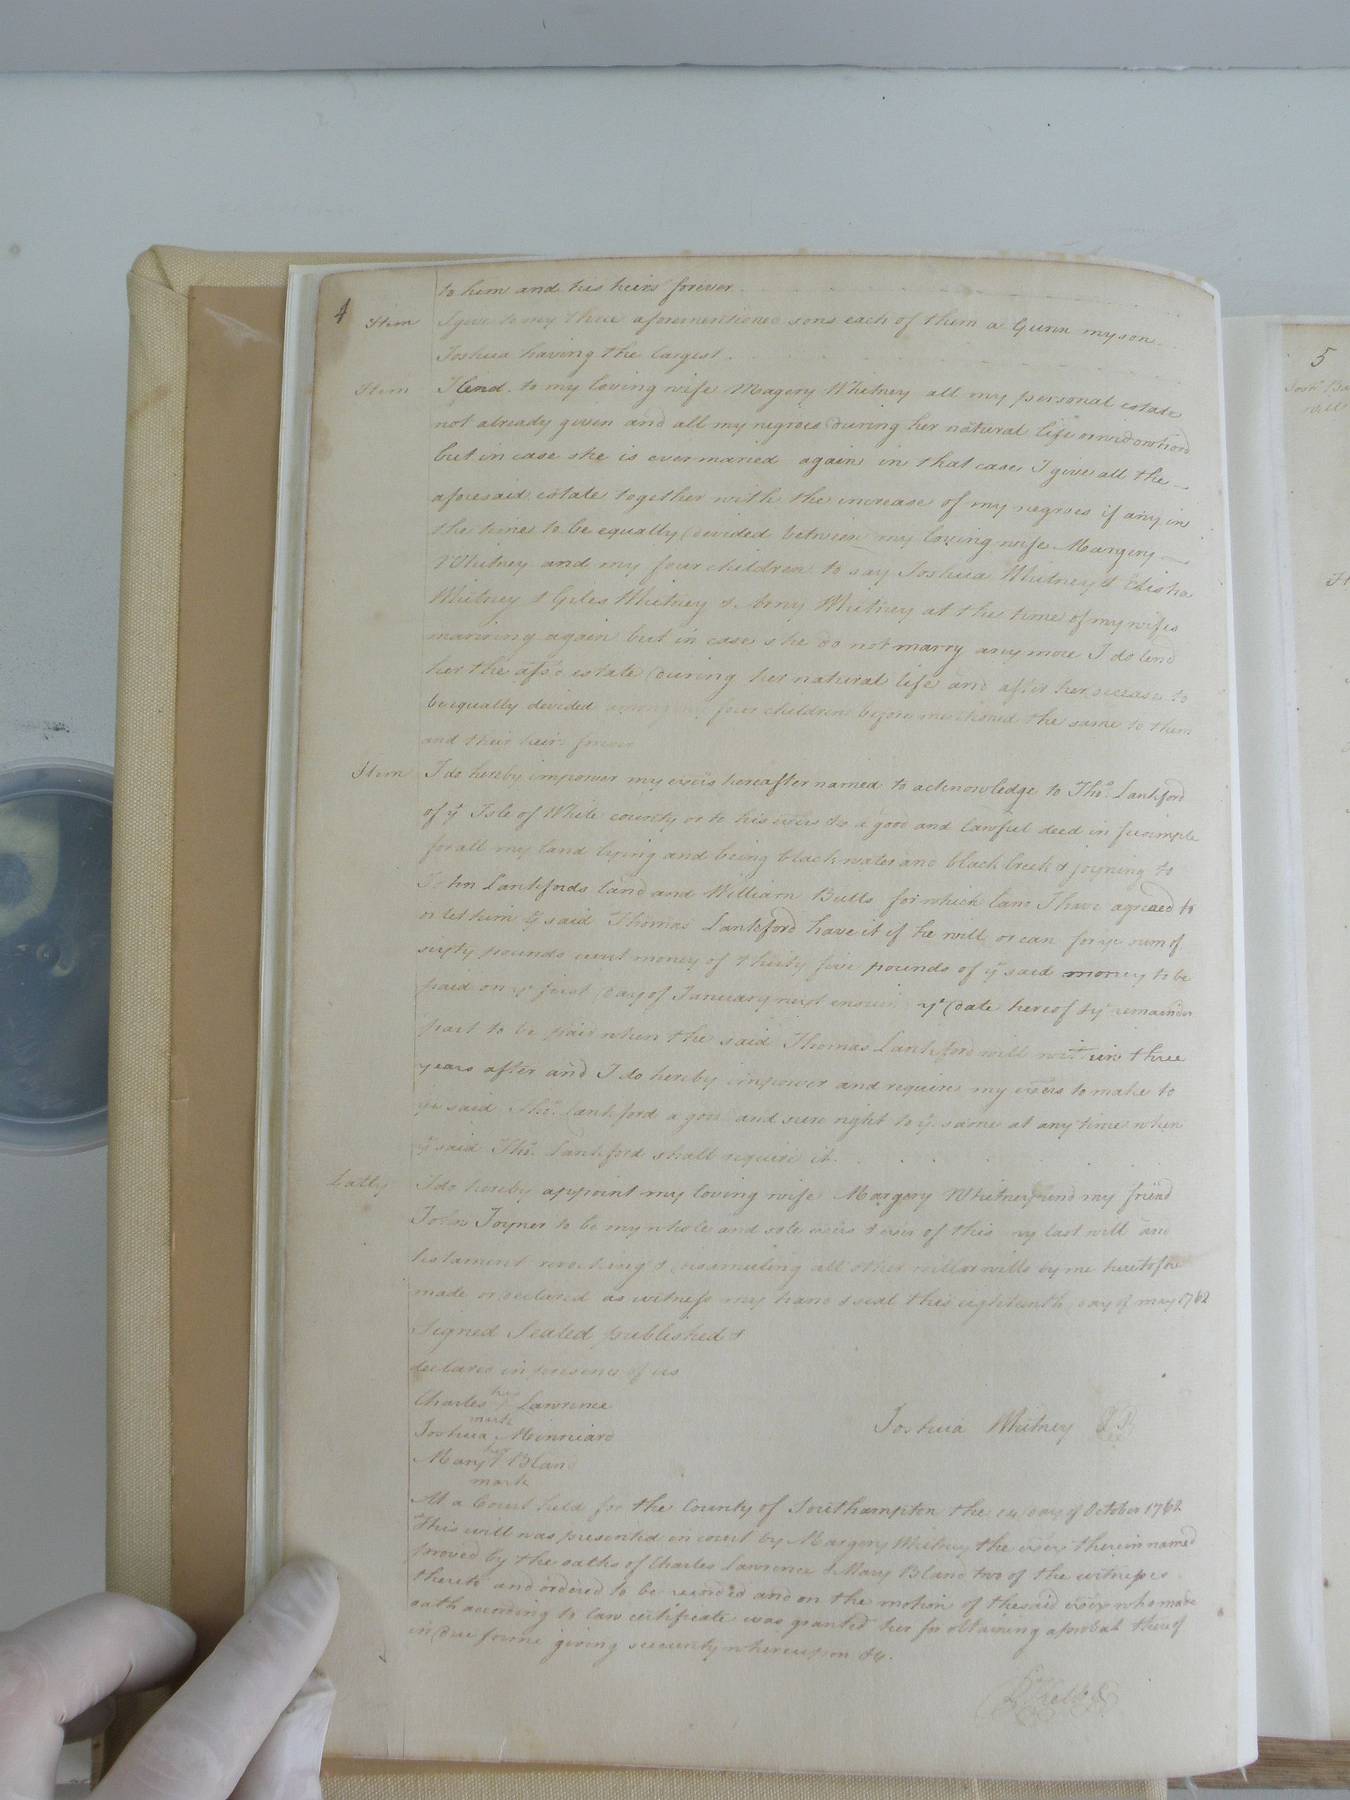 4
to him and his heirs forever
Item I give to my three aforementioned sons each of them a Gunn my son
Joshua having the largest.
Item I lend to my loving wife Magery Whitney all my personal estate
not already given and all my negroes during her natural life or widowhood
but in case she is ever maried again in that case I give all the
aforesaid estate together with the increase of my negroes if any in
the time to be equally devided between my loving wife Margery
Whitney and my four children to say Joshua Whitney & Edisha
Whitney & Giles Whitney & Amy Whitney at the time of my wifes
marriing again but in case she do not marry any more I do lend
her the afsd estate during her natural life and after her decease to
be equally devided among my four children before mentioned the same to them
and their heirs forever
Item I do hereby impower my exers hereafter named to acknowledge to Thos. Lankford
of ye Isle of White county or to his exers &c a good and lawful deed in feesimple
for all my land lying and being black water and black Creek & joyning to
John Lankfords land and William Butts for which land I have agreaed to
or let him ye said Thomas Lankford have it if he will or can for ye sum of
sixty pounds curt money of thirty five pounds of ye said money to be
paid on ye first day of January next ensuin ye date hereof & ye remainder
part to be paid when the said Thomas Lankford will within three
years after and I do hereby impower and require my exers to make to
ye said Thos. Lankford a good and sure right to ye same at any time when
ye said Thos. Lankford shall require it.
Lastly I do hereby appoint my loving wife Margery Whitney and my friend
John Joyner to be my whole and sole exers & exer of this my last will and
testament revoking & disanuling all other will or wills by me heretofore
made or declared as witness my hand & seal this eighteenth day of may 1762
Signed Sealed published &
declared in presence of us
Charles his Lawrence
mark
Joshua Minniard
Mary her Bland
mark
Joshua Whitney
At a Court held for the County of Southampton the 14 day of October 1762
This will was presented in court by Margery Whitney the exex therein named
proved by the oaths of Charles Lawrence & Mary Bland two of the witnesses
thereto and ordered to be recorded and on the motion of the said exex who made
oath according to law certificate was granted her for obtaining a probat thereof
in due forme giving security whereupon &c.
5